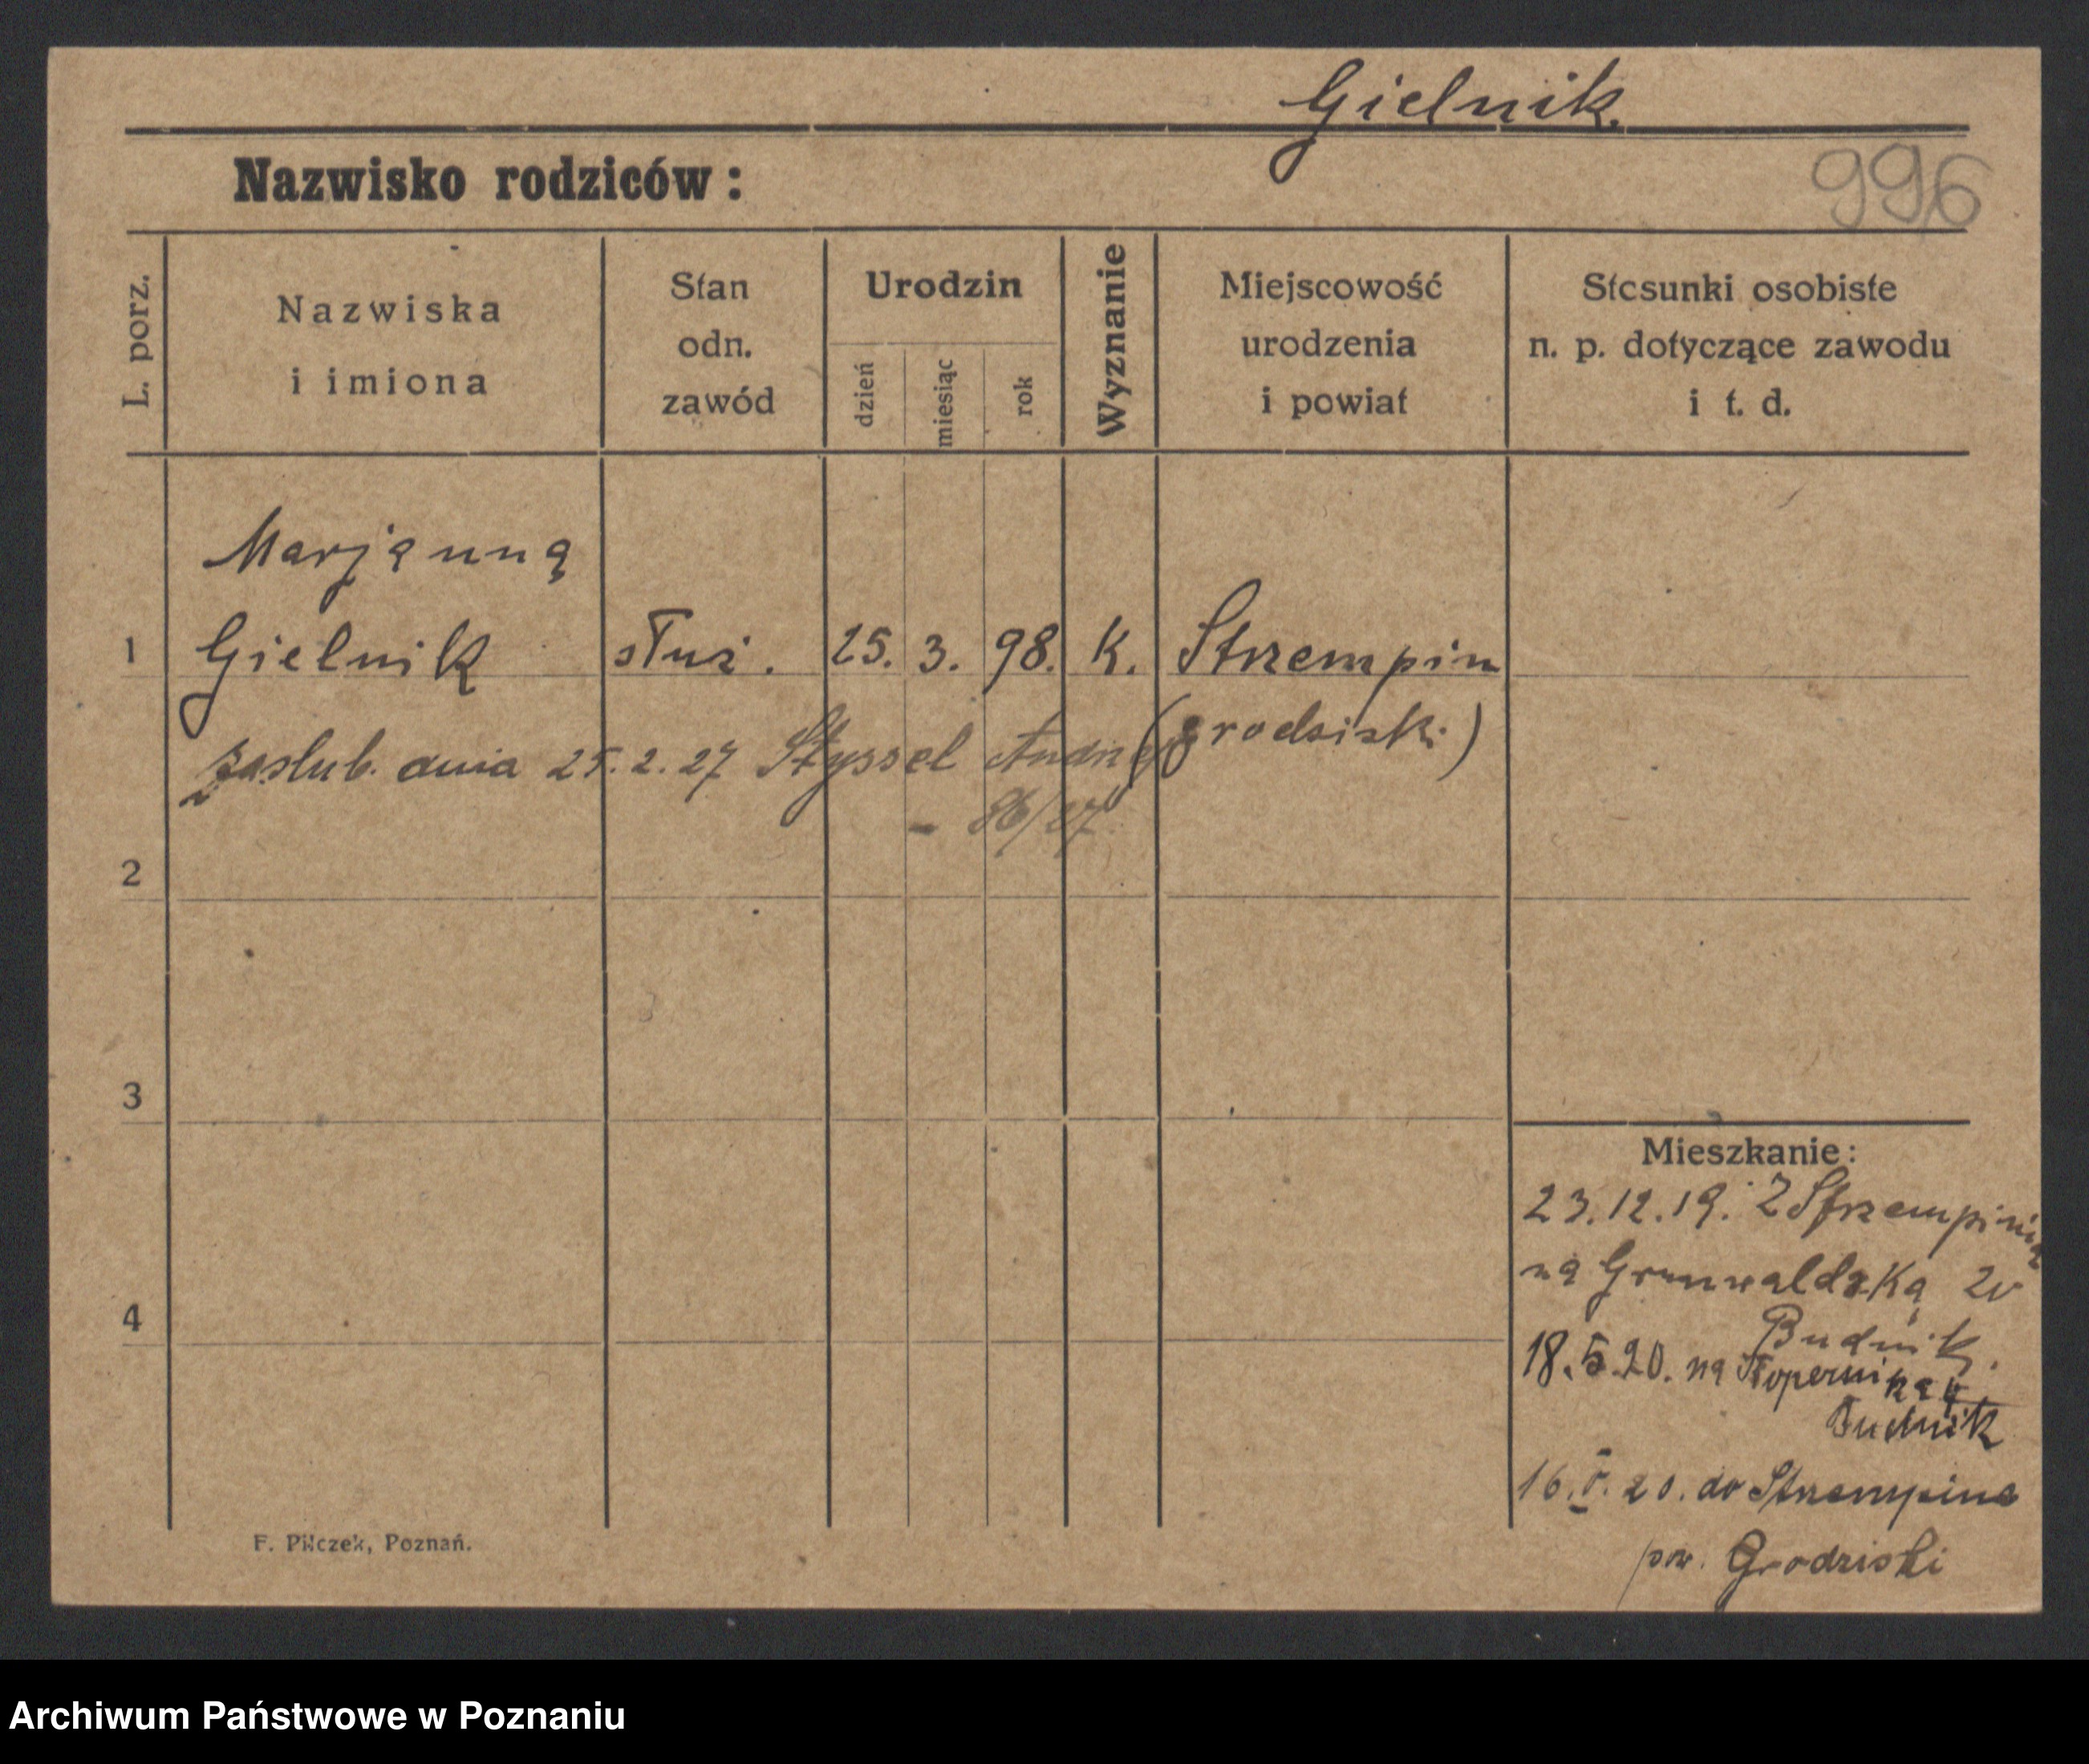 Gielnik
996
Nazwisko rodziców:
L. porz.
Nazwiska
i imiona
Stan
odn.
zawód
Urodzin
dzień
miesiąc
rok
Wyznanie
Miejscowość
urodzenia
i powiat
Stosunki osobiste
n. p. dotyczące zawodu
i t. d.
Marjanna
1 Gielnik służ. 25. 3. 98. K. Strzempin
(grodziski)
zaslub. dnia 25.2.27 Styssel
- 86/27
2
3
4
Mieszkanie:
23.12.19. Z Strzempinia
na Grunwaldzką
Budnik.
18.5.20. na
Budnik
16.V.20. do Strzempina
pow. Grodziski
F. Pilczek, Poznań.
Archiwum Państwowe w Poznaniu